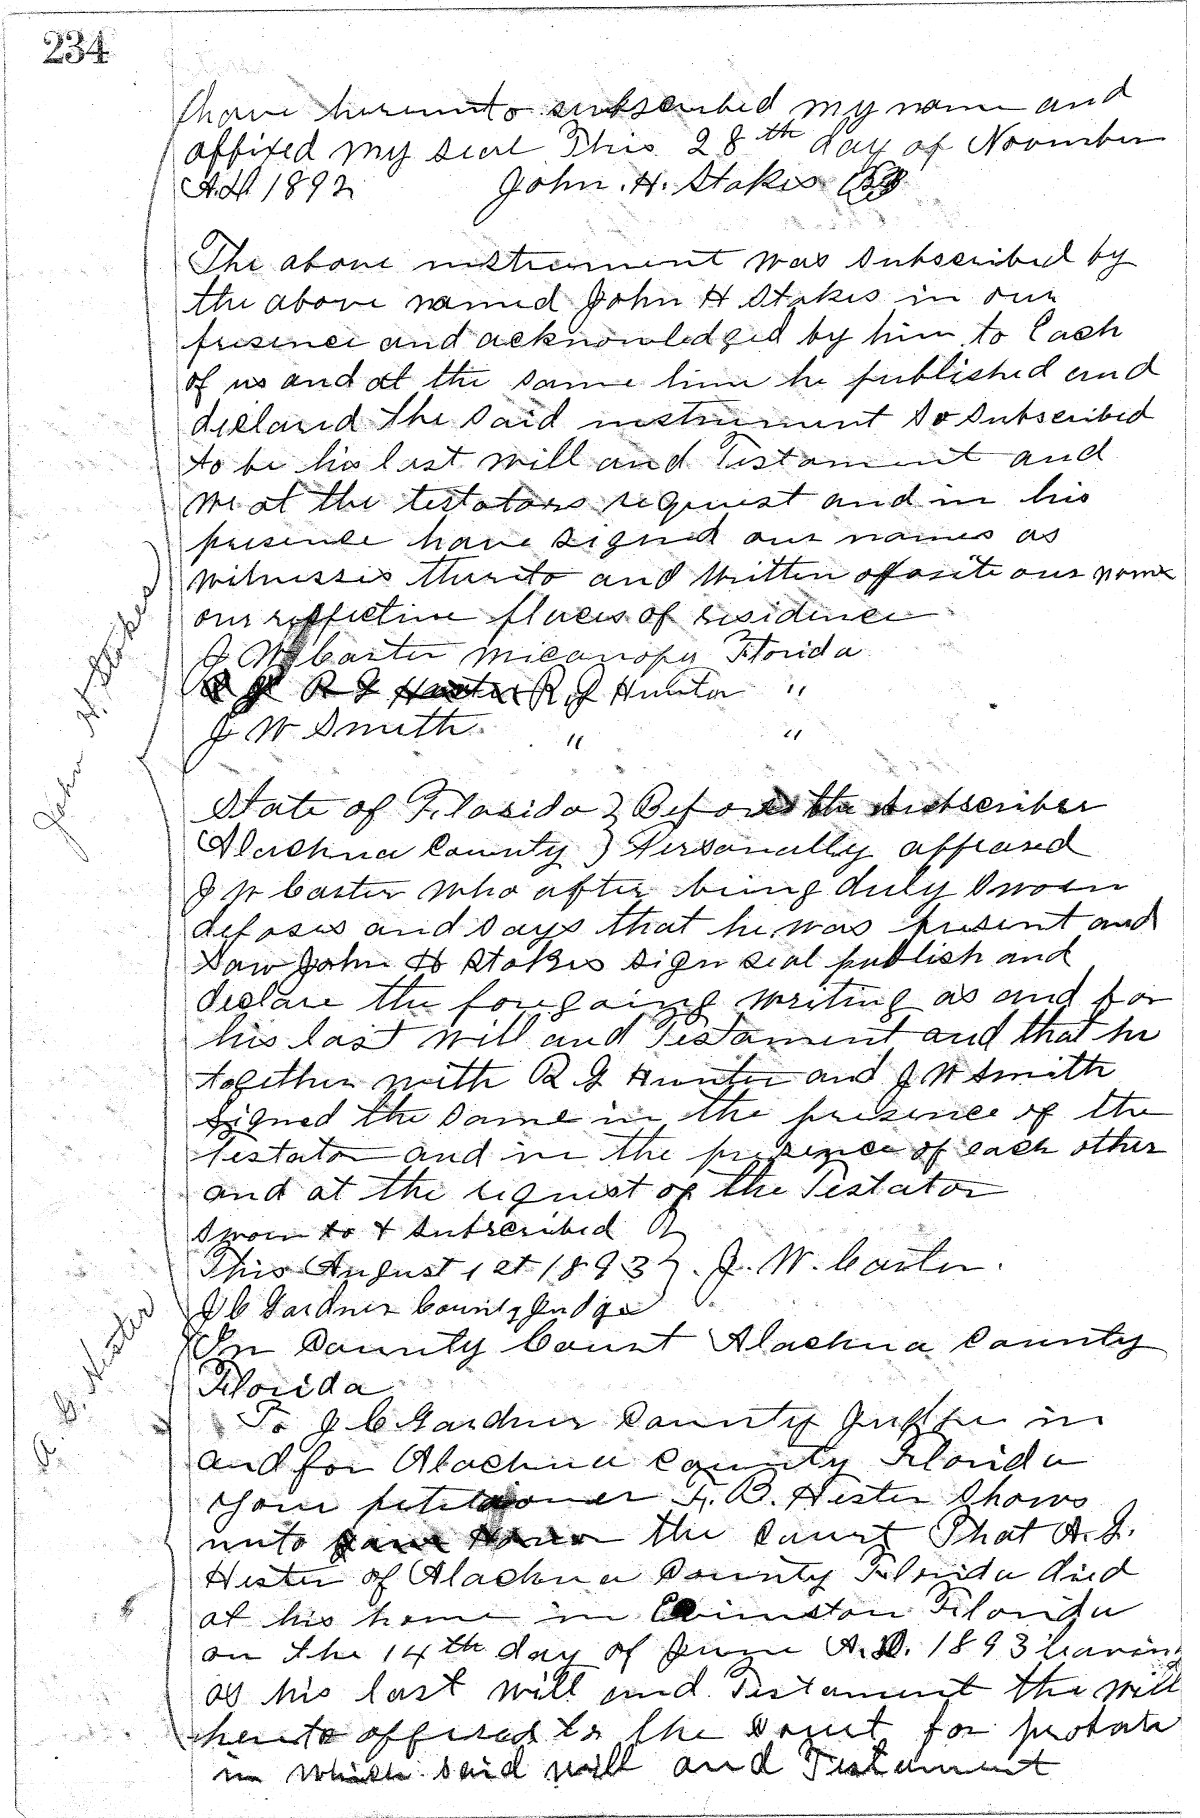 234
have hereunto subscribed my name and
affixed my seal This 28th day of November
A.D. 1892 John. H. Stokes
The above instrument was subscribed by
the above named John H Stokes in our
presence and acknowledged by him to Each
of us and at the same time he published and
declared the said instrument so subscribed
to be his last will and Testament and
we at the testators request and in his
presence have signed our names as
witnesses thereto and written opposite our name
our respective places of residence
J W Carter Micanopy Florida
R J Hunter "
J W Smith " "
John H. Stokes
State of Florida } Before the subscriber
Alachua County } Personally appeared
J W Carter who after being duly sworn
deposes and says that he was present and
saw John H Stokes sign seal publish and
declare the foregoing writing as and for
his last will and Testament and that he
together with R J Hunter and J W Smith
signed the same in the presence of the
Testator and in the presence of each other
and at the request of the Testator
Sworn to & subscribed }
This August 1st 1893 } J. W. Carter.
J C Gardner County Judge
A. G. Hester
In County Court Alachua County
Florida
To J C Gardner County Judge in
and for Alachua County Florida
Your petitioner F. B. Hester Shows
unto the Court That A. G.
Hester of Alachua County Florida died
at his home in Evinston Florida
on the 14th day of June A.D. 1893 leaving
as his last will and Testament the will
hereto offered to the Court for probate
in which said will and Testament